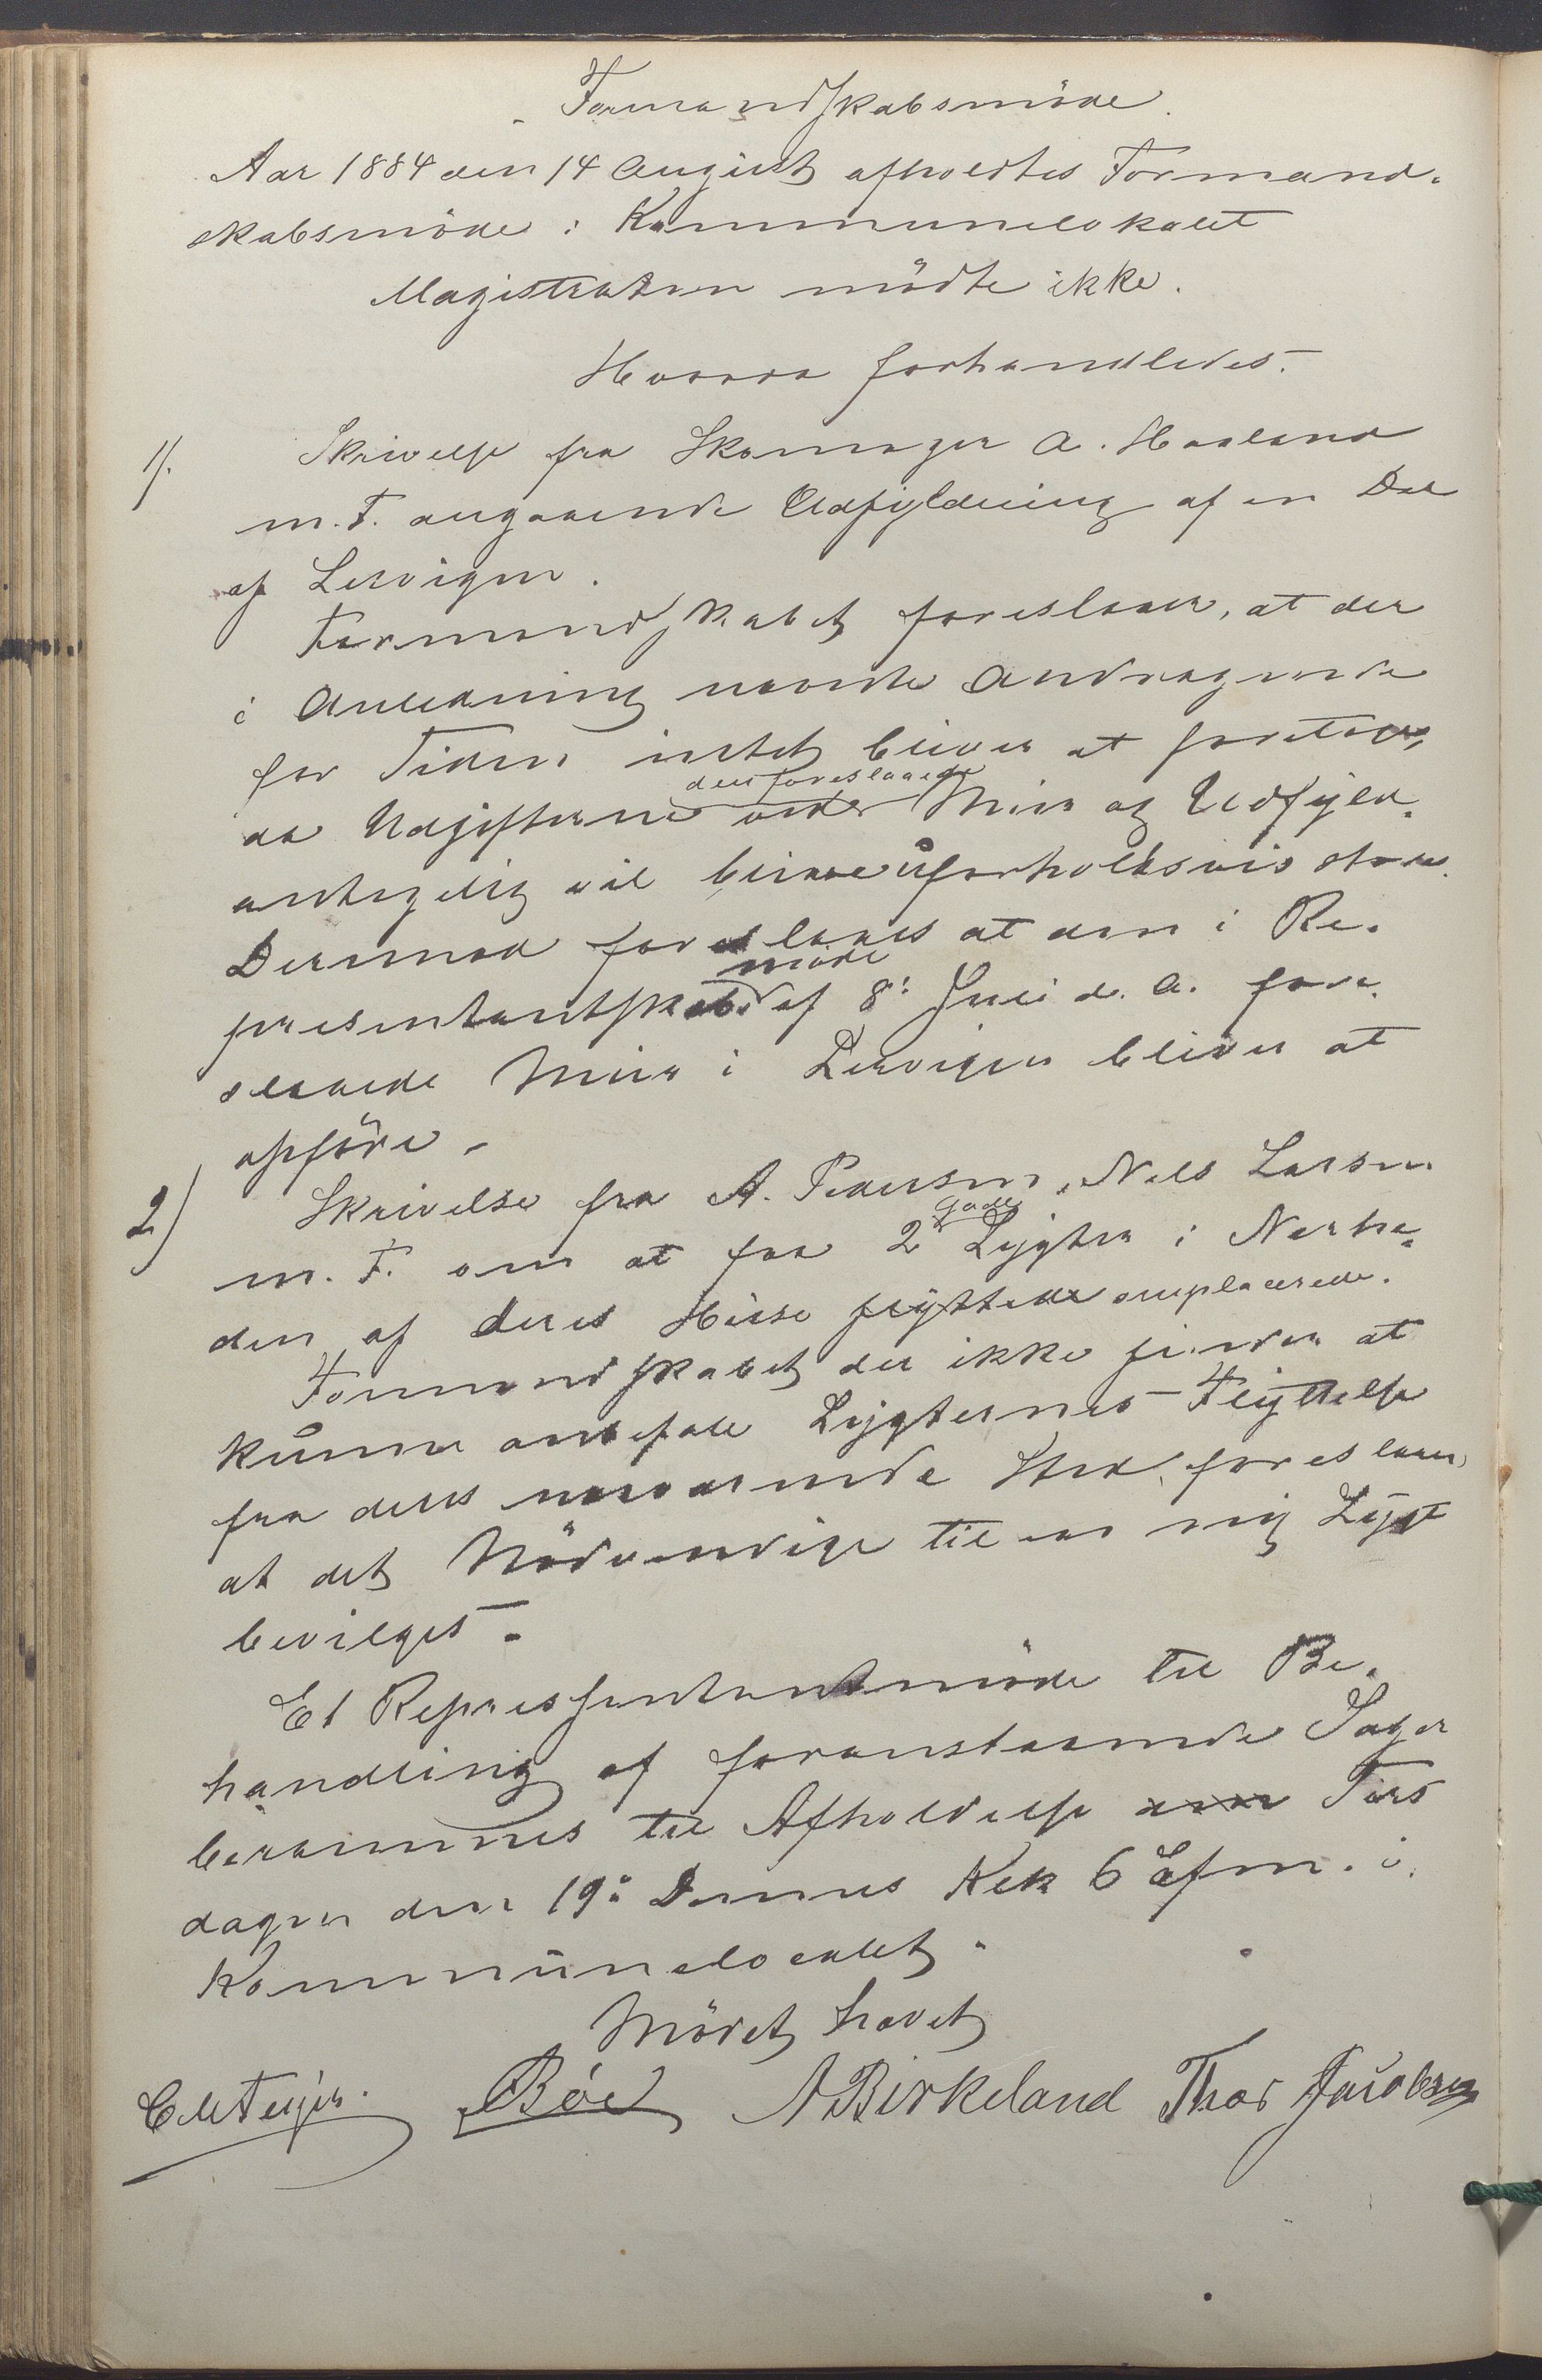 Formandskabsmöde.
Aar 1884 den 14 August afholdtes Formand-
skabsmöde i Kommunelokalet
Magistraten mödte ikke.
Hvorda forhandledes.
1/. Skrivelse fra Skomager A. Haaland
m. F. angaaende Udfyldning af en Del
af Lervigen.
Formandskabet foreslaaer, at der
i Anledning nævnte Andragende
for Tiden intet bliver at foretage,
da Udgifterne den foreslaaede Mur og Udfyld.
antagelig vil blive uforholdsvis store.
Derimod foreslaaes at den i Re-
presentantskabsmöde af 8: Juli d. A. fore-
slaaede Muur i Lervigen bliver at
opföre.
2) Skrivelse fra A. Pedersen, Nels Larsen
m. F. om at faa 2 Gade Lygter i Nærhe-
den af deres Huse flyttede omplacerede.
Formandskabet der ikke finder at
kunne anbefale Lygternes Flyttelse
fra deres nuværende Sted, foreslaaer,
at det Nödvendige til en ny Lygt
bevilges.
Et Repressentantmöde til Be-
handling af foranstaaende Sager
berammes til Afholdelse den Tirs
dagen den 19: Dennes Kek 6 Efm. i
Kommunelocalet.
Mödet hævet
Böe A Birkeland Thor Jacobsen